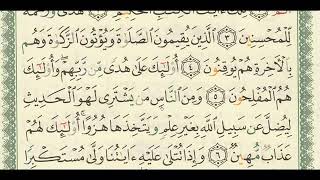 لِّلْمُحْسِنِينَ ٣ ٱلَّذِينَ يُقِيمُونَ ٱلصَّلَوٰةَ وَيُؤْتُونَ ٱلزَّكَوٰةَ وَهُم
بِٱلْءَاخِرَةِ هُمْ يُوقِنُونَ ٤ أُو۟لَٰٓئِكَ عَلَىٰ هُدًى مِّن رَّبِّهِمْ وَأُو۟لَٰٓئِكَ
هُمُ ٱلْمُفْلِحُونَ ٥ وَمِنَ ٱلنَّاسِ مَن يَشْتَرِى لَهْوَ ٱلْحَدِيثِ
لِيُضِلَّ عَن سَبِيلِ ٱللَّهِ بِغَيْرِ عِلْمٍ وَيَتَّخِذَهَا هُزُوًا أُو۟لَٰٓئِكَ لَهُمْ
عَذَابٌ مُّهِينٌ ٦ وَإِذَا تُتْلَىٰ عَلَيْهِ ءَايَٰتُنَا وَلَّىٰ مُسْتَكْبِرًا